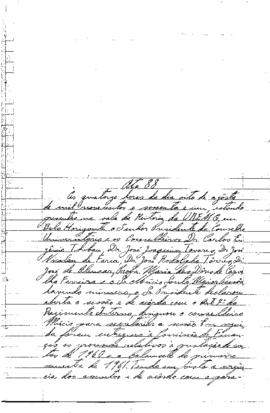 Ata 88
Às quatorze horas do dia oito de agôsto
de mil novecentos e sessenta e um, estando
presentes na sala da Reitoria da UREMG, em
Belo Horizonte o Senhor Presidente do Conselho
Universitário e os Conselheiros Dr. Carlos Eu
gênio Thibau, Dr. José Joaquim Tavares, Dr. José
de Faria, Dr. José Rodolpho
José de Alencar, Maria das Dores de Carva
lho Ferreira e o Sr. Mário havendo
número, o Sr. Presidente declarou
aberta a sessão e de acôrdo com o Art. 8º do
Regimento Interno, designou o conselheiro
Mário para secretariar a sessão. Em segui
da foram entregues à Comissão de Finan
ças os processos relativos à
ços de 1960 e o balancete do primeiro
semestre de 1961. Tendo em vista a urgên
cia dos assuntos e de acôrdo com o pará-